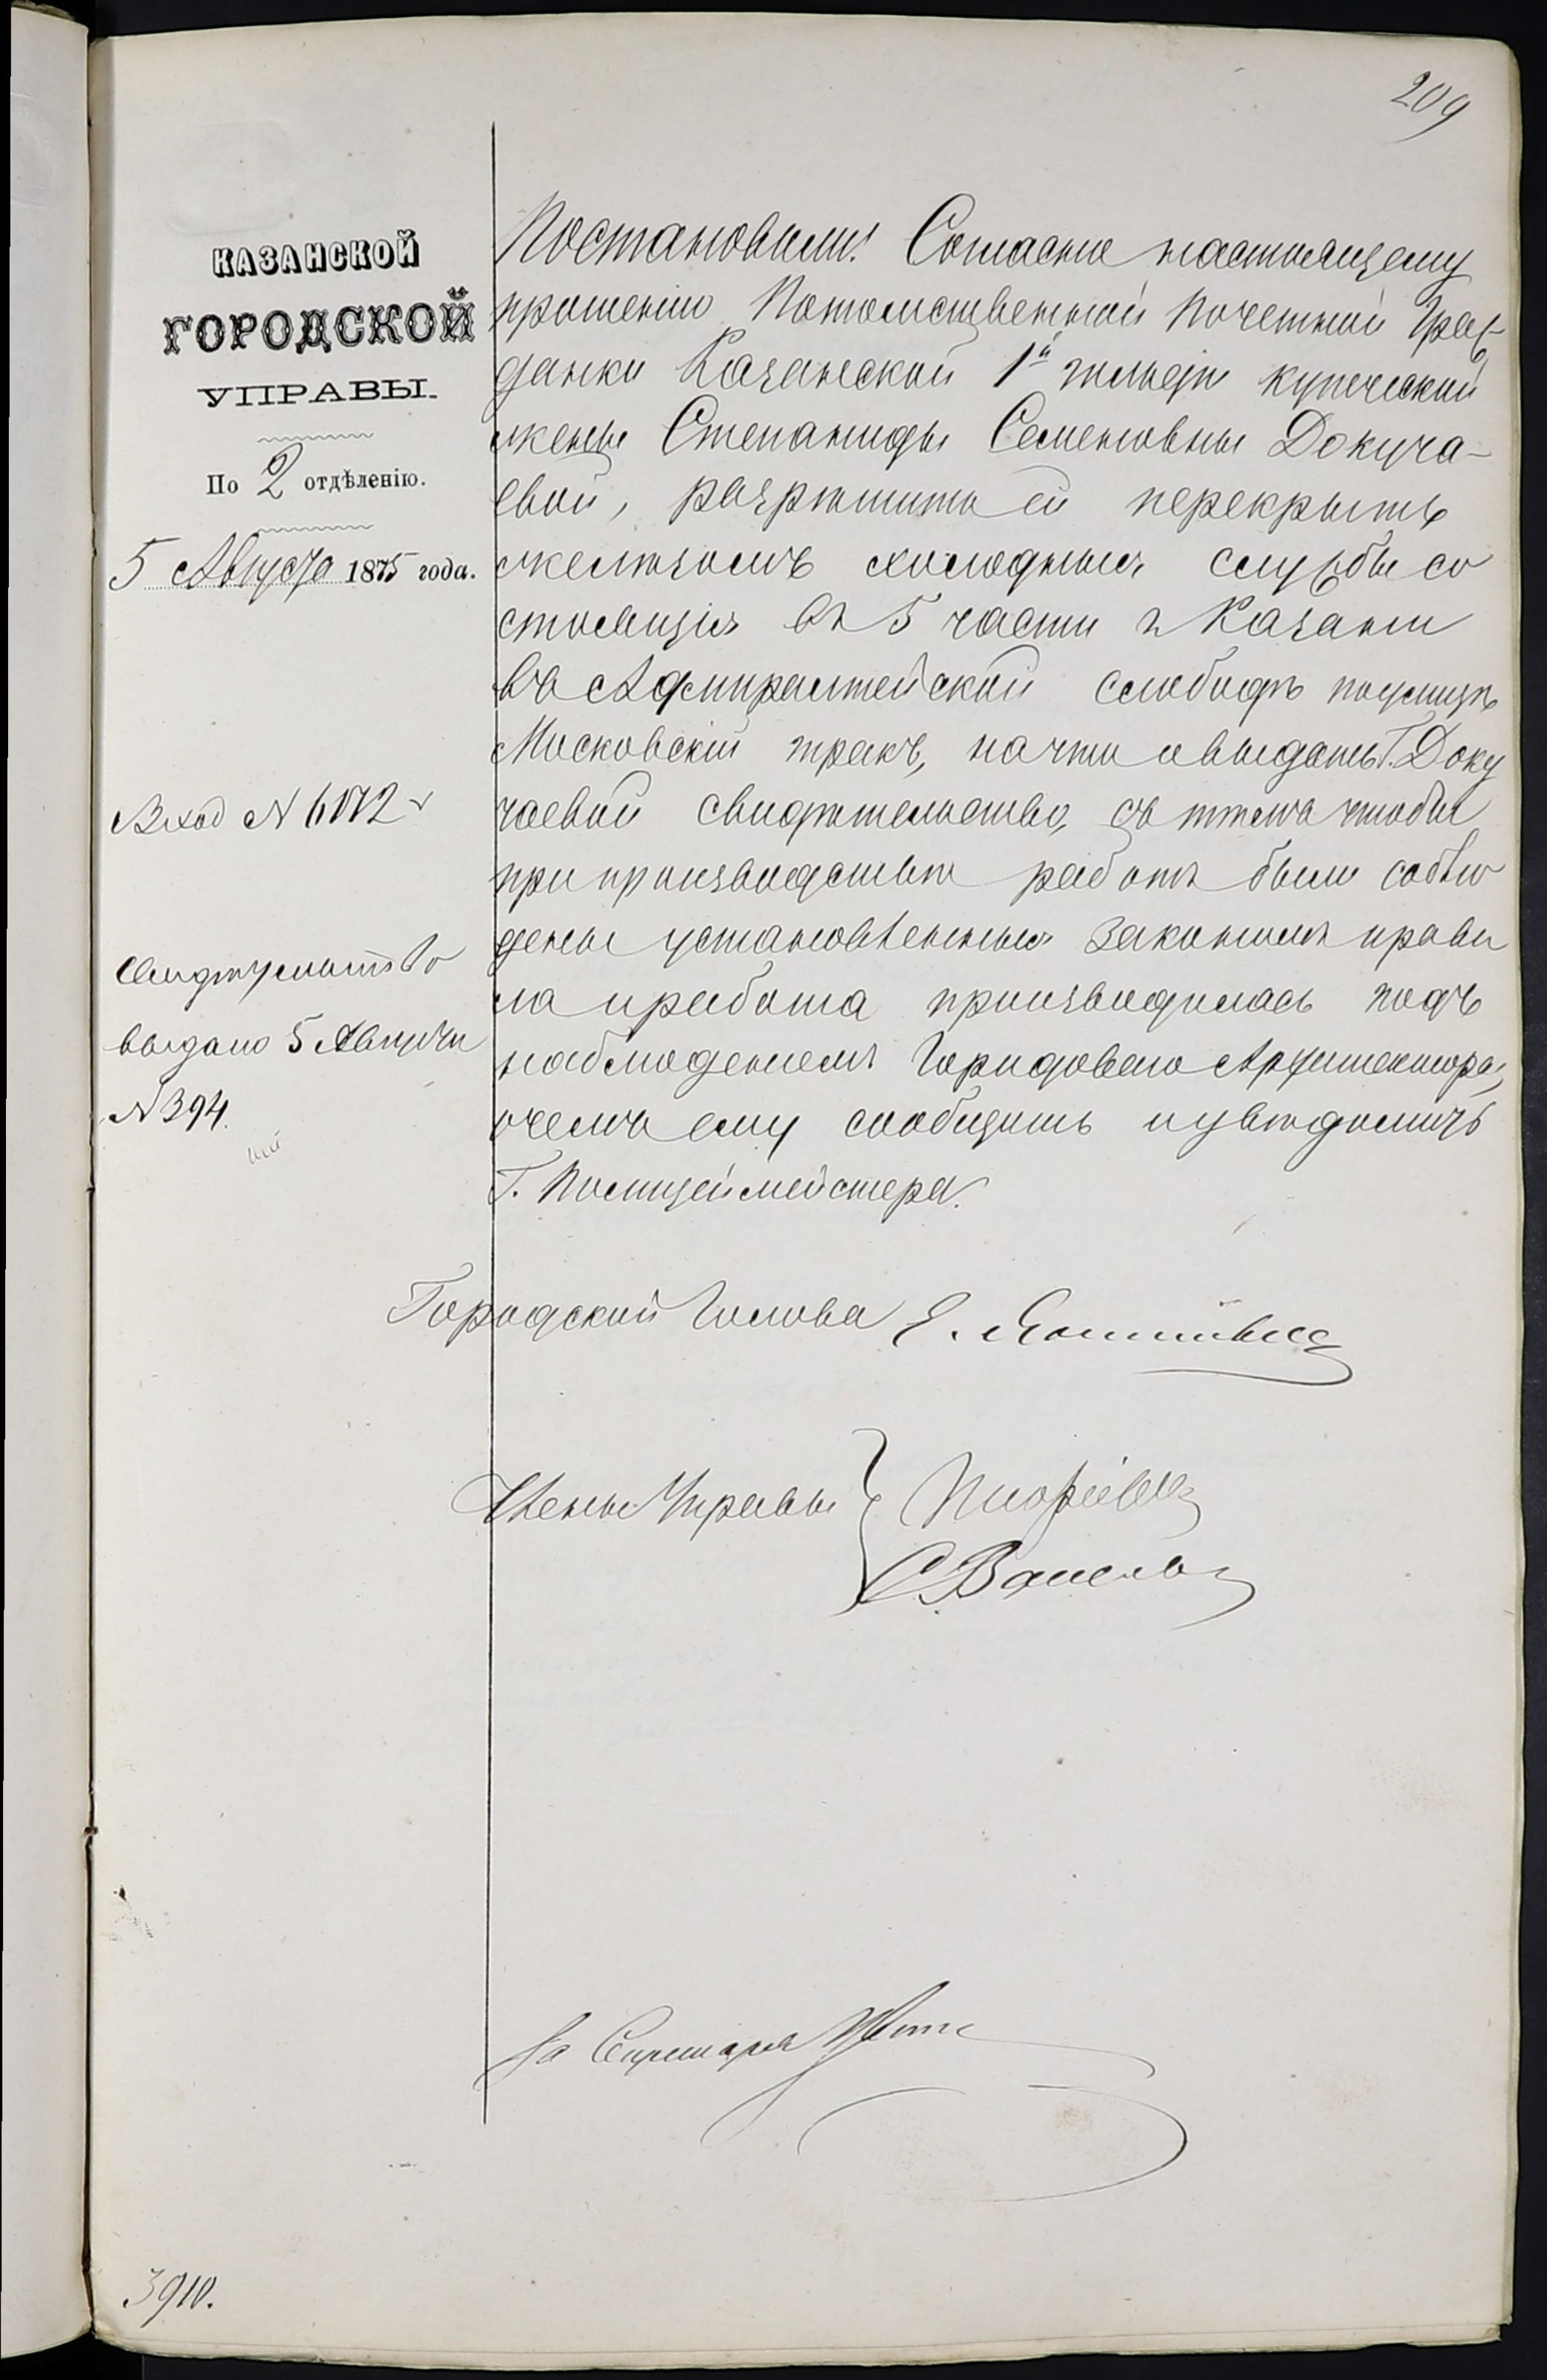 209
КАЗАНСКОЙ
ГОРОДСКОЙ
УПРАВЫ.
По 2 отдѣленію.
5 Августа 1875 года.
Вход N 6172
Свидѣтельство
выдано 5 Августа
N 394.
Постановили: Согласно настоящему
прошенію Потомственной Почетной Граж
данки Казанской 1й гильдіи купеческой
жены Степаниды Семеновны Докуча-
евой, разрѣшить ей перекрыть
желѣзомъ холодныя службы со
стоящія въ 5 части г Казани
въ Адмиралтейской слободѣ по улицѣ
Московскій трактъ, на что и выдать Г. Доку
чаевой свидѣтельство, съ тѣмъ чтобы
при производствѣ работъ были соблю
дены установленныя закономъ прави
ла и работа производилась подъ
наблюденіемъ Городового Архитектора,
о чемъ ему сообщить и увѣдомить
Г. Полицеймейстера.
Городской Голова Э. Янишевск
Члены Управы
За Секретаря
3910.